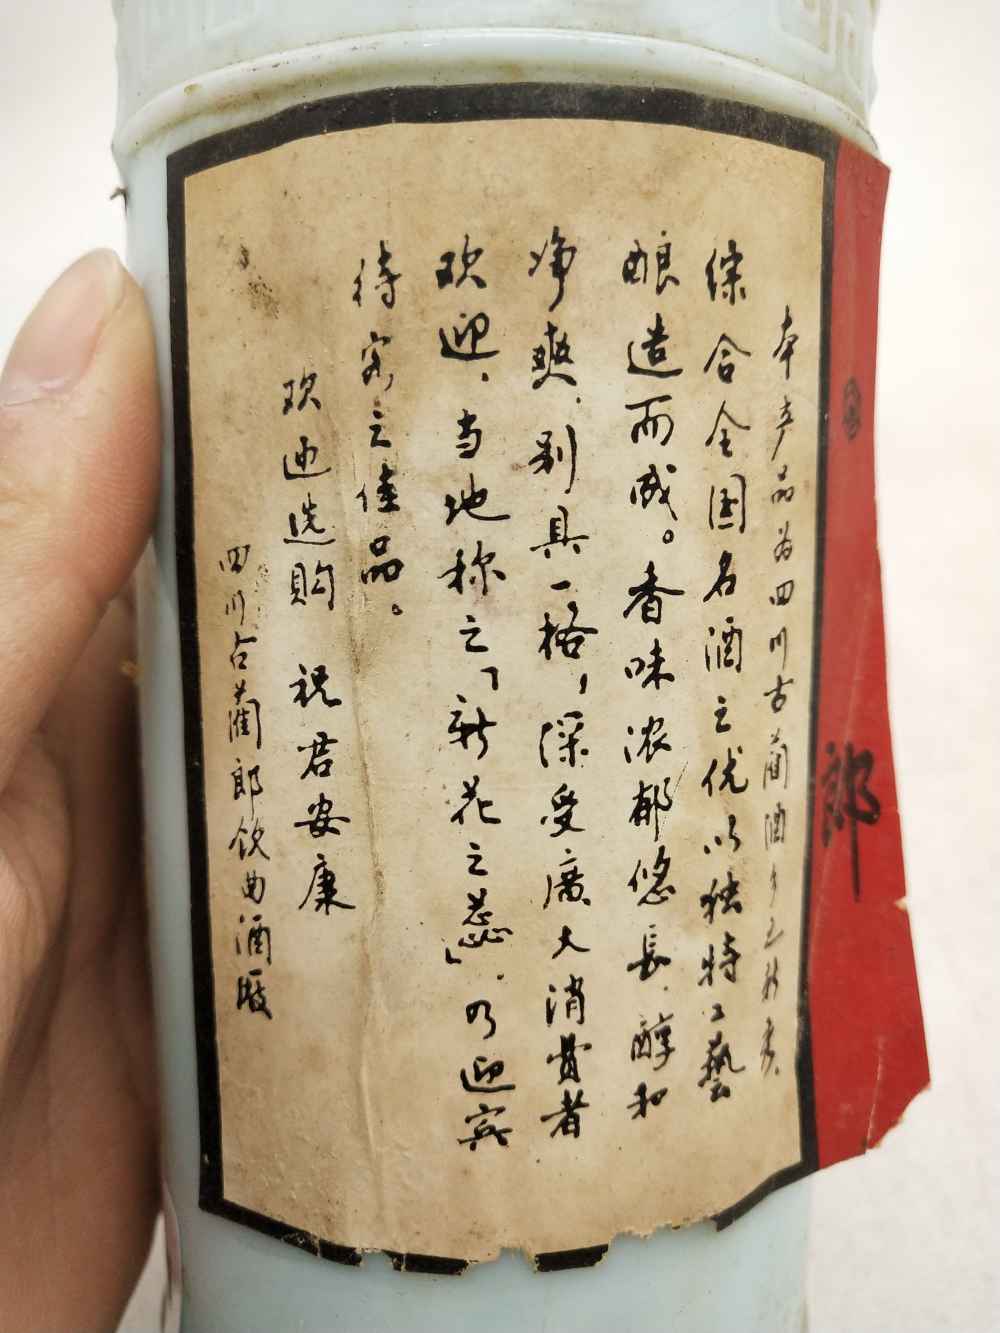 郎
本产品为四川古蔺酒乡之新秀
综合全国名酒之优以独特工艺
酿造而成。香味浓郁悠長、醇和
净爽、别具一格，深受廣大消費者
欢迎、当地称之「新花之蕊」、乃迎宾
待客之佳品。
欢迎选购 祝君安康
四川古蔺郎饮曲酒厰